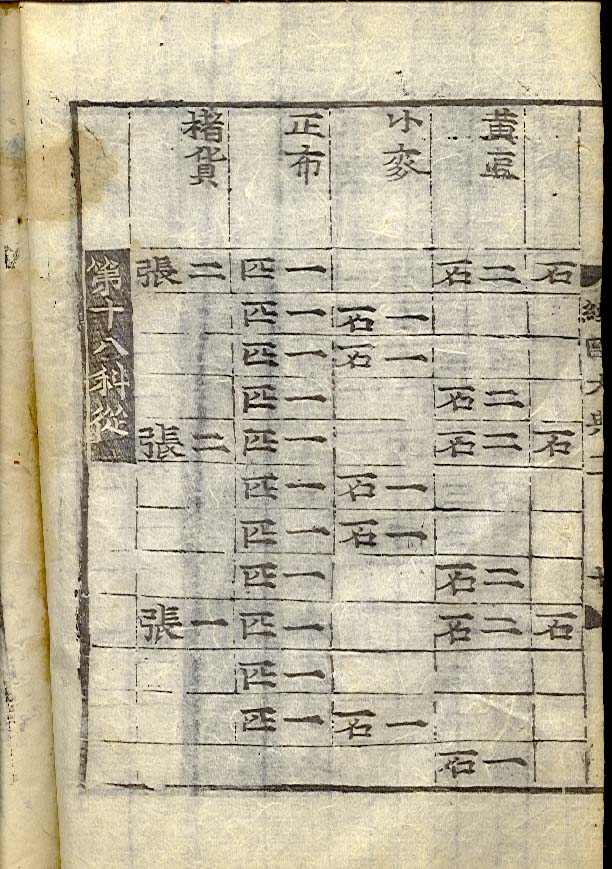 經國大典二
石 石 石
黃豆 二石 二石 二石 二石 二石 一石
小麥 一石 一石 一石 一石 一石
正布 一匹 一匹 一匹 一匹 一匹 一匹 一匹 一匹 一匹 一匹 一匹
楮貨 二張 二張 一張
第十八科從